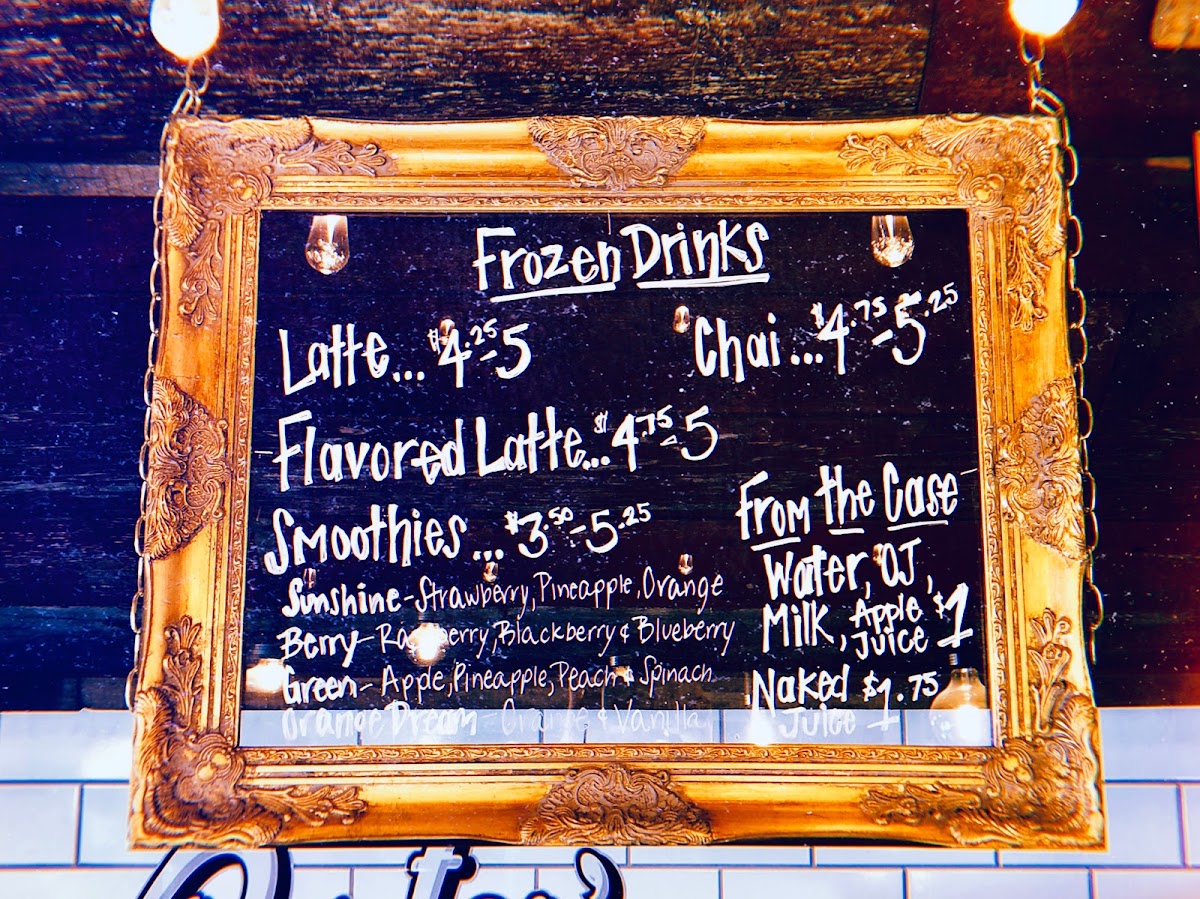 Frozen Drinks
Latte... $4.25-5
Chai... $4.75-5.25
Flavored Latte... $4.75-5
Smoothies... $3.50-5.25
Sunshine - Strawberry, Pineapple, Orange
Berry - Raspberry, Blackberry & Blueberry
Green - Apple, Pineapple, Peach & Spinach
Orange Dream - Orange & Vanilla
From the Case
Water, OJ,
Milk, Apple Juice $1
Naked Juice $1.75